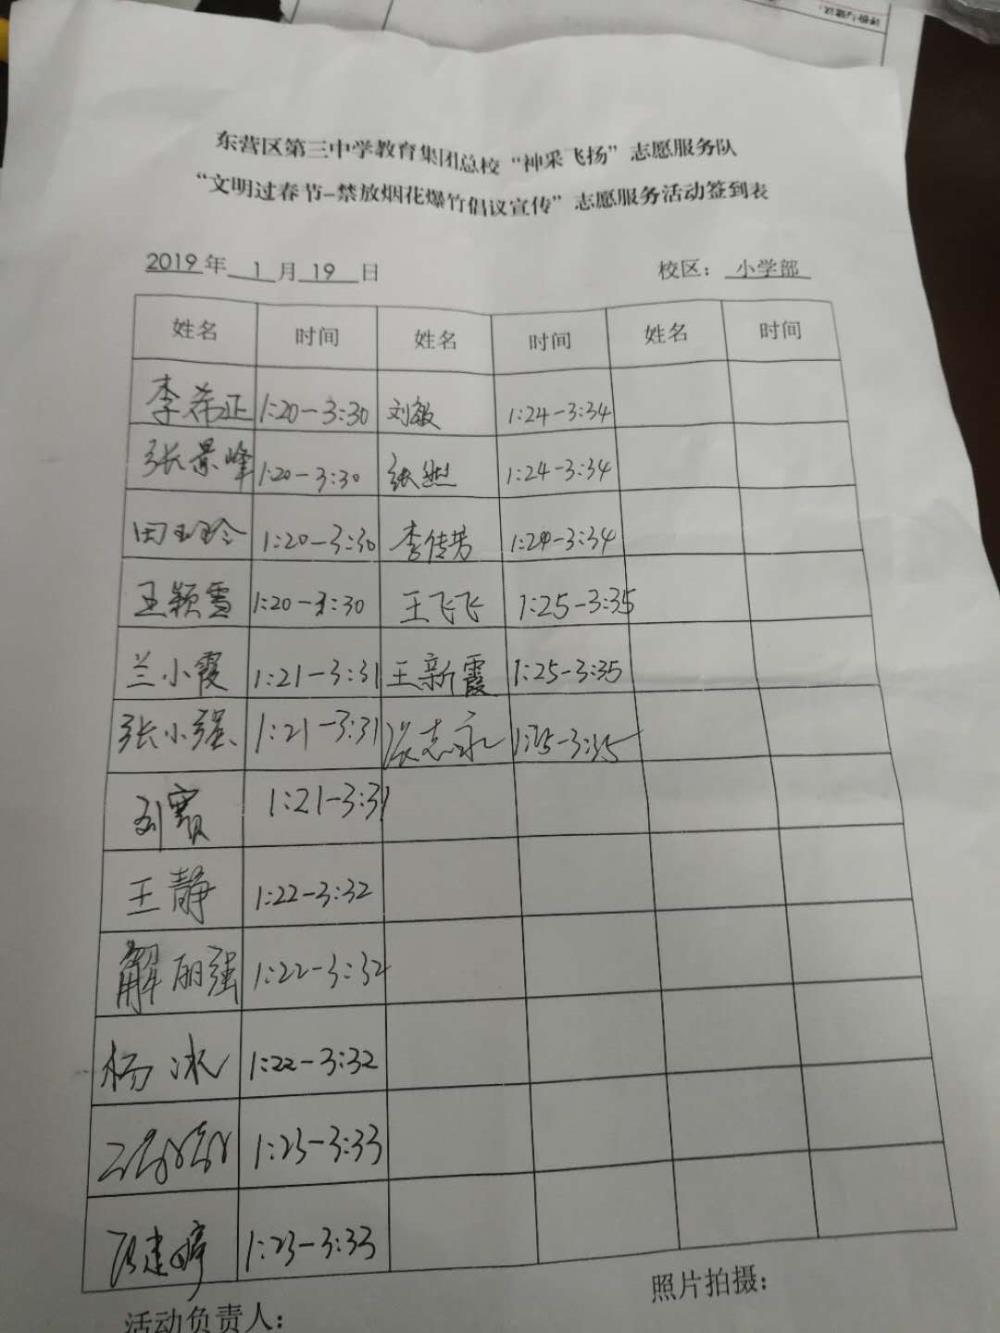 东营区第三中学教育集团总校“神采飞扬”志愿服务队
“文明过春节-禁放烟花爆竹倡议宣传”志愿服务活动签到表
2019年 1 月 19 日 校区： 小学部
姓名 时间 姓名 时间 姓名 时间
李希正 1:20-3:30 刘敏 1:24-3:34
张景峰 1:20-3:30 张燃 1:24-3:34
田玉玲 1:20-3:30 李传芳 1:24-3:34
王颖雪 1:20-3:30 王飞飞 1:25-3:35
兰小霞 1:21-3:31 王新霞 1:25-3:35
张小强 1:21-3:31 张志永 1:25-3:35
刘霞 1:21-3:31
王静 1:22-3:32
解丽强 1:22-3:32
杨冰 1:22-3:32
1:23-3:33
建婷 1:23-3:33
照片拍摄：
活动负责人：